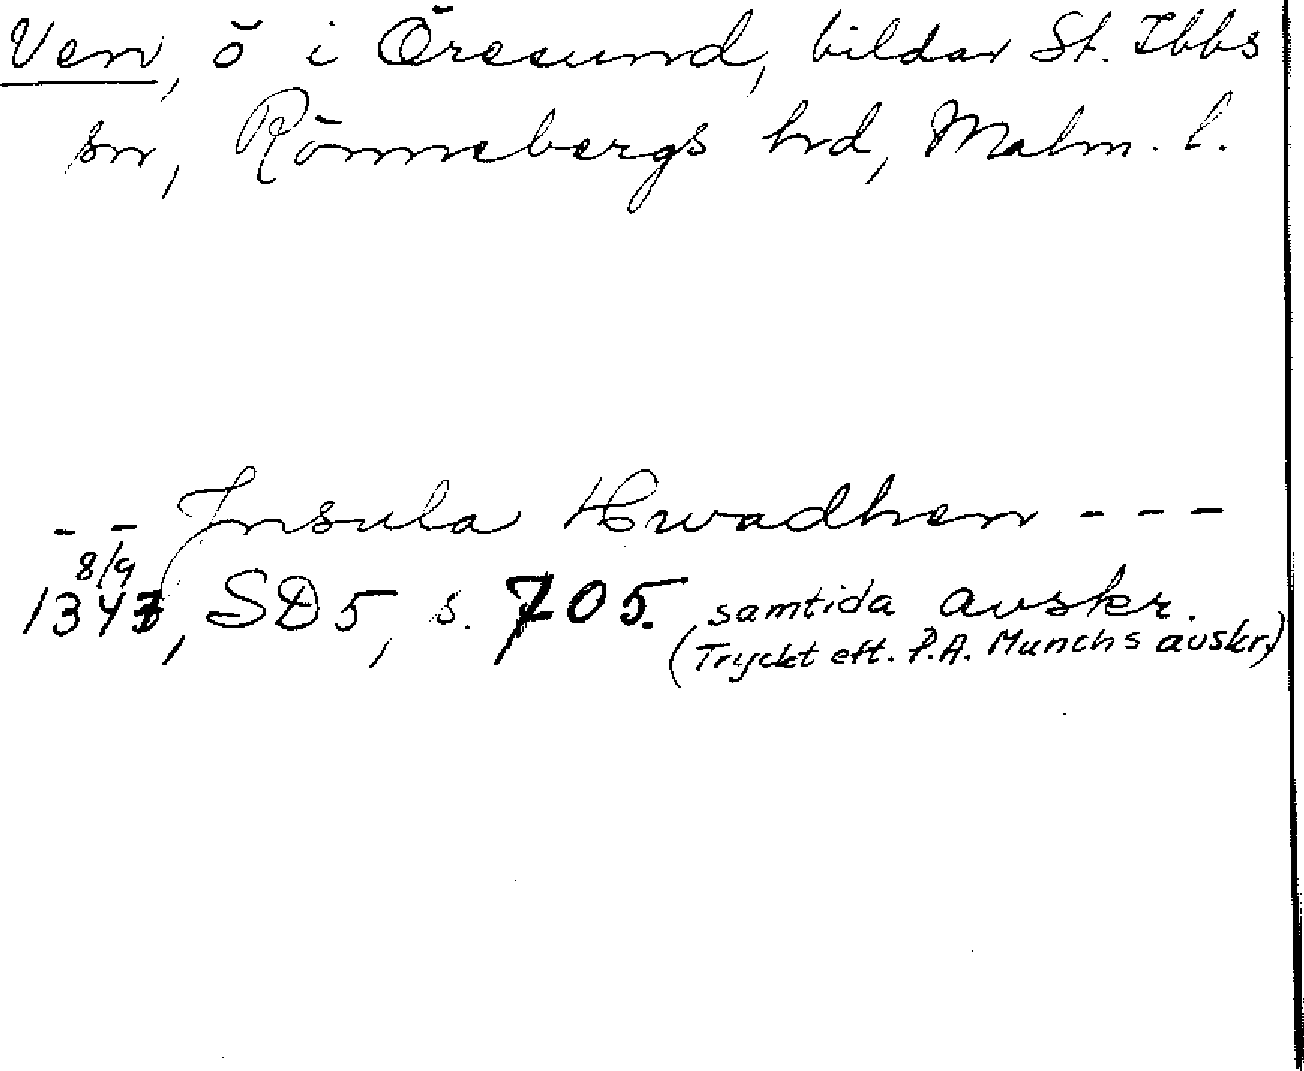 Ven, ö i Öresund, bildar St. Ibbs
sn, Rönnebergs hd, Malm. l.
- - Insula Hwadhen - - -
8/9
1343, SD 5, s. 705. samtida avskr.
(Tryckt eft. P.A. Munchs avskr.)